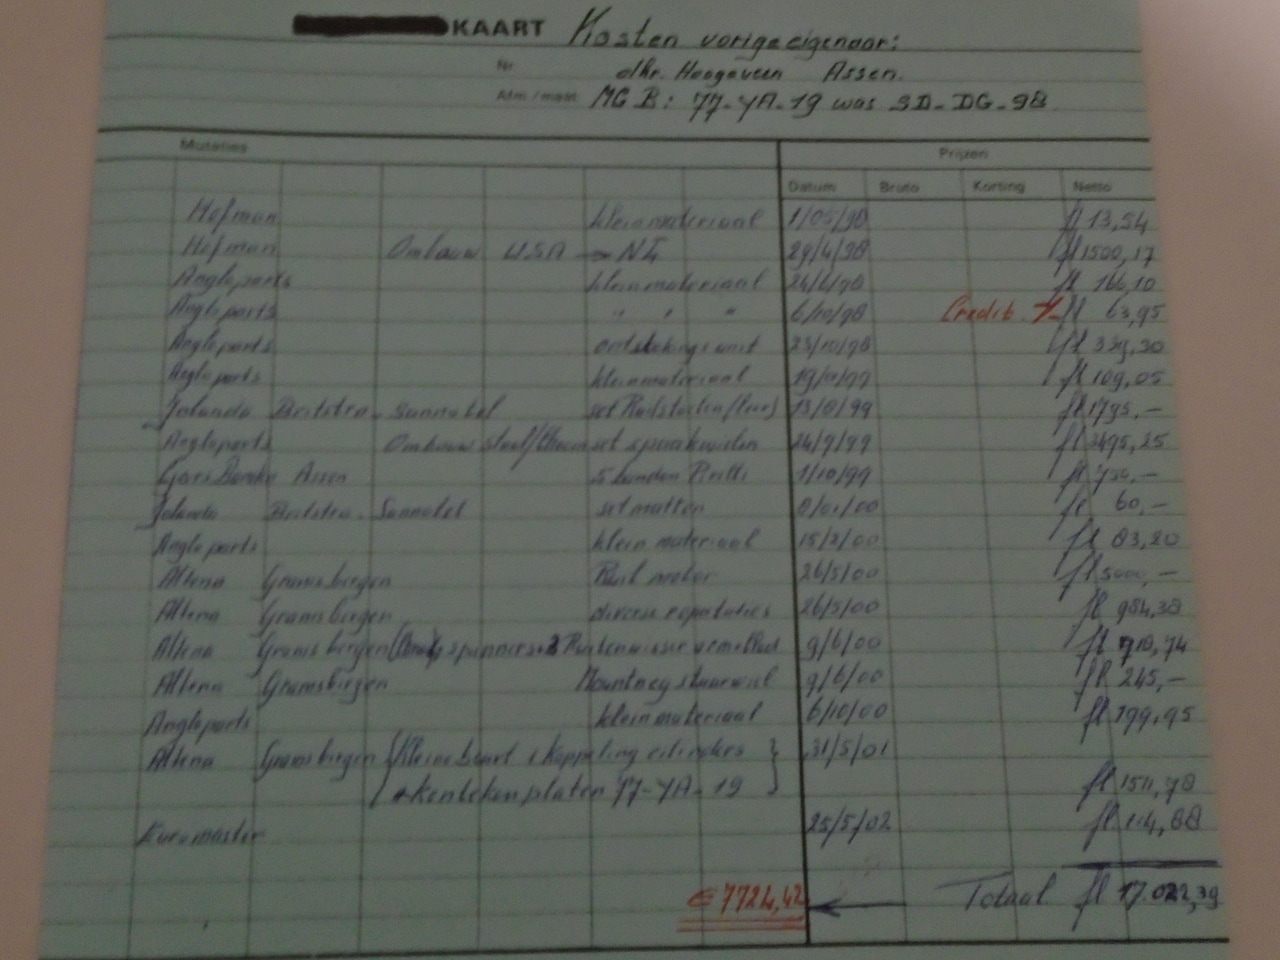 KAART Kosten vorige eigenaar:
Nr. dhr. Hoogeveen Assen.
MGB: 77-YA-19 was SD-DG-98
Mutaties Prijzen
Datum Bruto Korting Netto
Hofman klein materiaal 1/05/98 fl 13,54
Hofman Ombouw USA → NL 29/4/98 fl 1500,17
Angloparts klein materiaal fl 166,10
Angloparts " " " 6/10/98 Credit fl 63,95
Angloparts 23/10/98 fl 339,30
Angloparts klein materiaal fl 109,05
Jolanda Britstra - Sannabel 13/8/99 fl 1795,-
Angloparts Ombouw set spaakwielen 24/9/99 fl 3495,25
Assen 5 banden Pirelli 1/10/99 fl
Jolanda Britstra - Sannabel set matten fl 60,-
Angloparts klein materiaal 15/3/00 fl 83,20
Altena Gramsbergen Ruil motor 26/5/00 fl 5000,-
Altena Gramsbergen diverse reparaties 26/5/00 fl 984,38
Altena Gramsbergen spinners + 2 Ruitenwisser 9/6/00 fl
Altena Gramsbergen Mountney stuurwiel 9/6/00 fl 245,-
Angloparts klein materiaal 6/10/00 fl
Altena Gramsbergen Kleine beurt + koppeling cilinders 31/5/01
+ kentekenplaten 77-YA-19 fl 1511,78
Euromaster 25/5/02 fl
€ 7724,42 ← Totaal fl 17.022,39